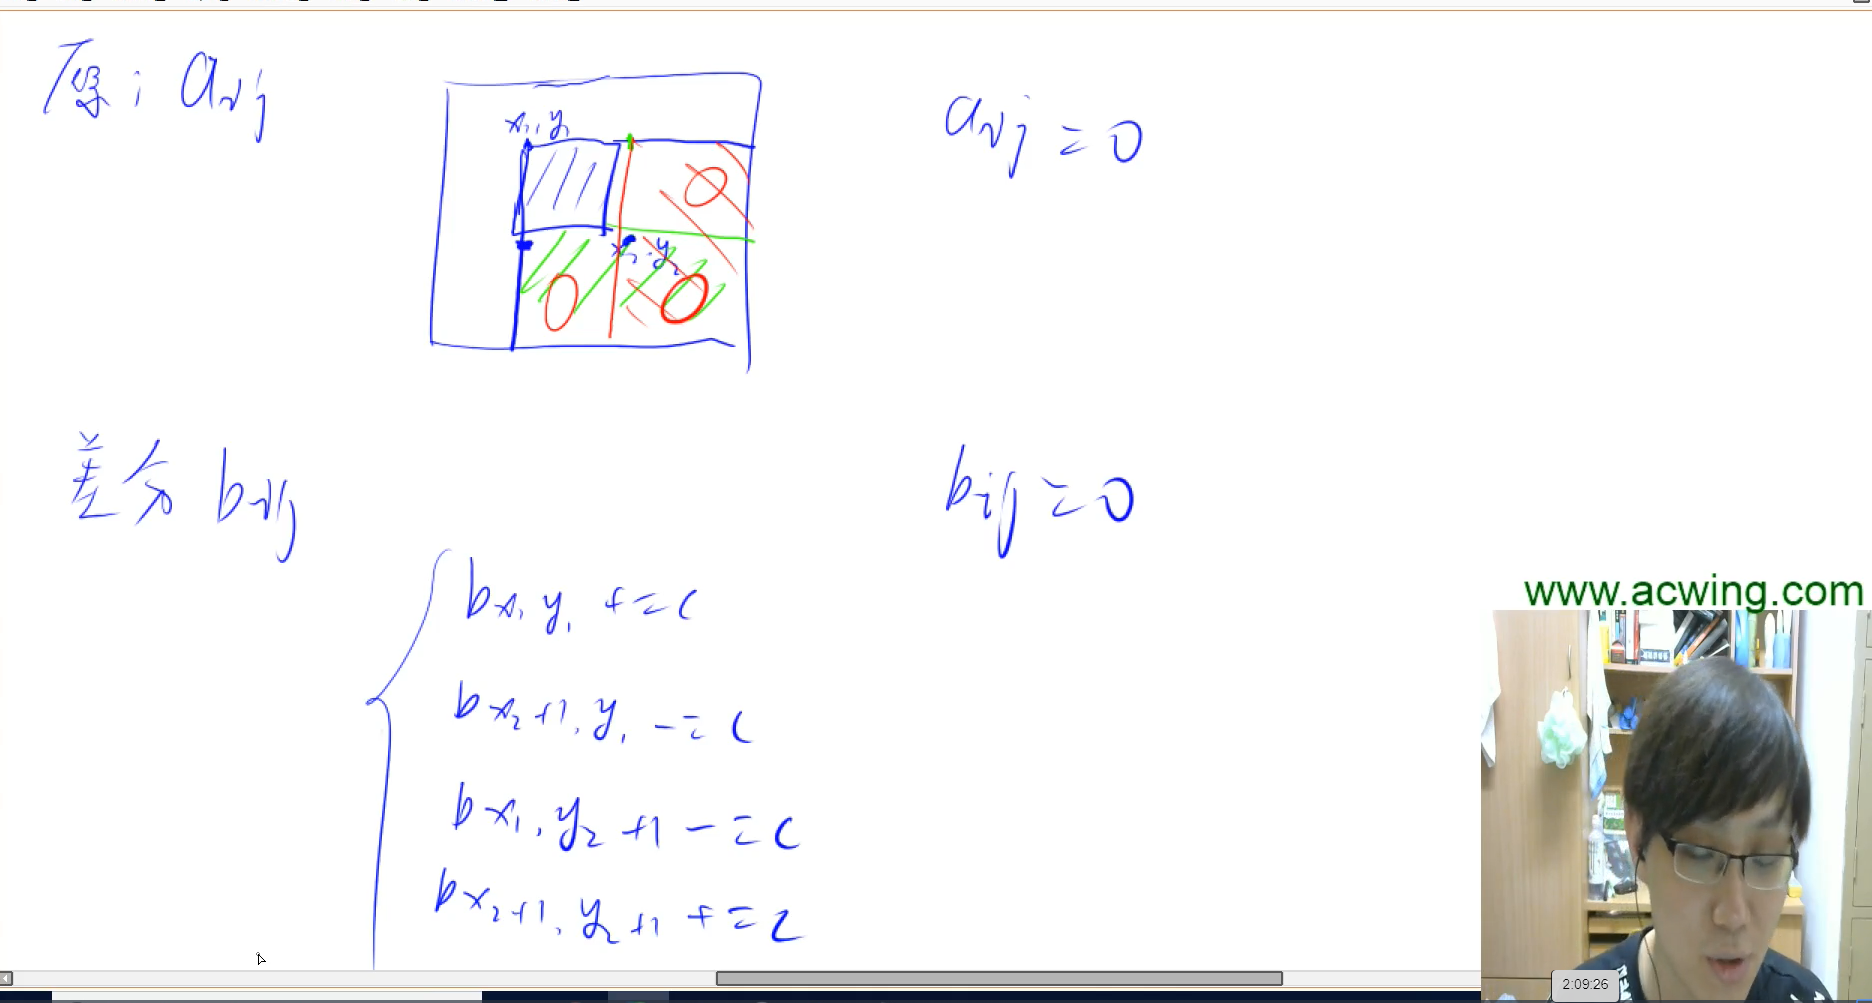 原: aij
x1, y1
x2, y2
0
0
0
aij = 0
差分 bij
bij = 0
bx1y1 += c
bx2+1, y1 -= c
bx1, y2+1 -= c
bx2+1, y2+1 += c
www.acwing.com
2:09:26